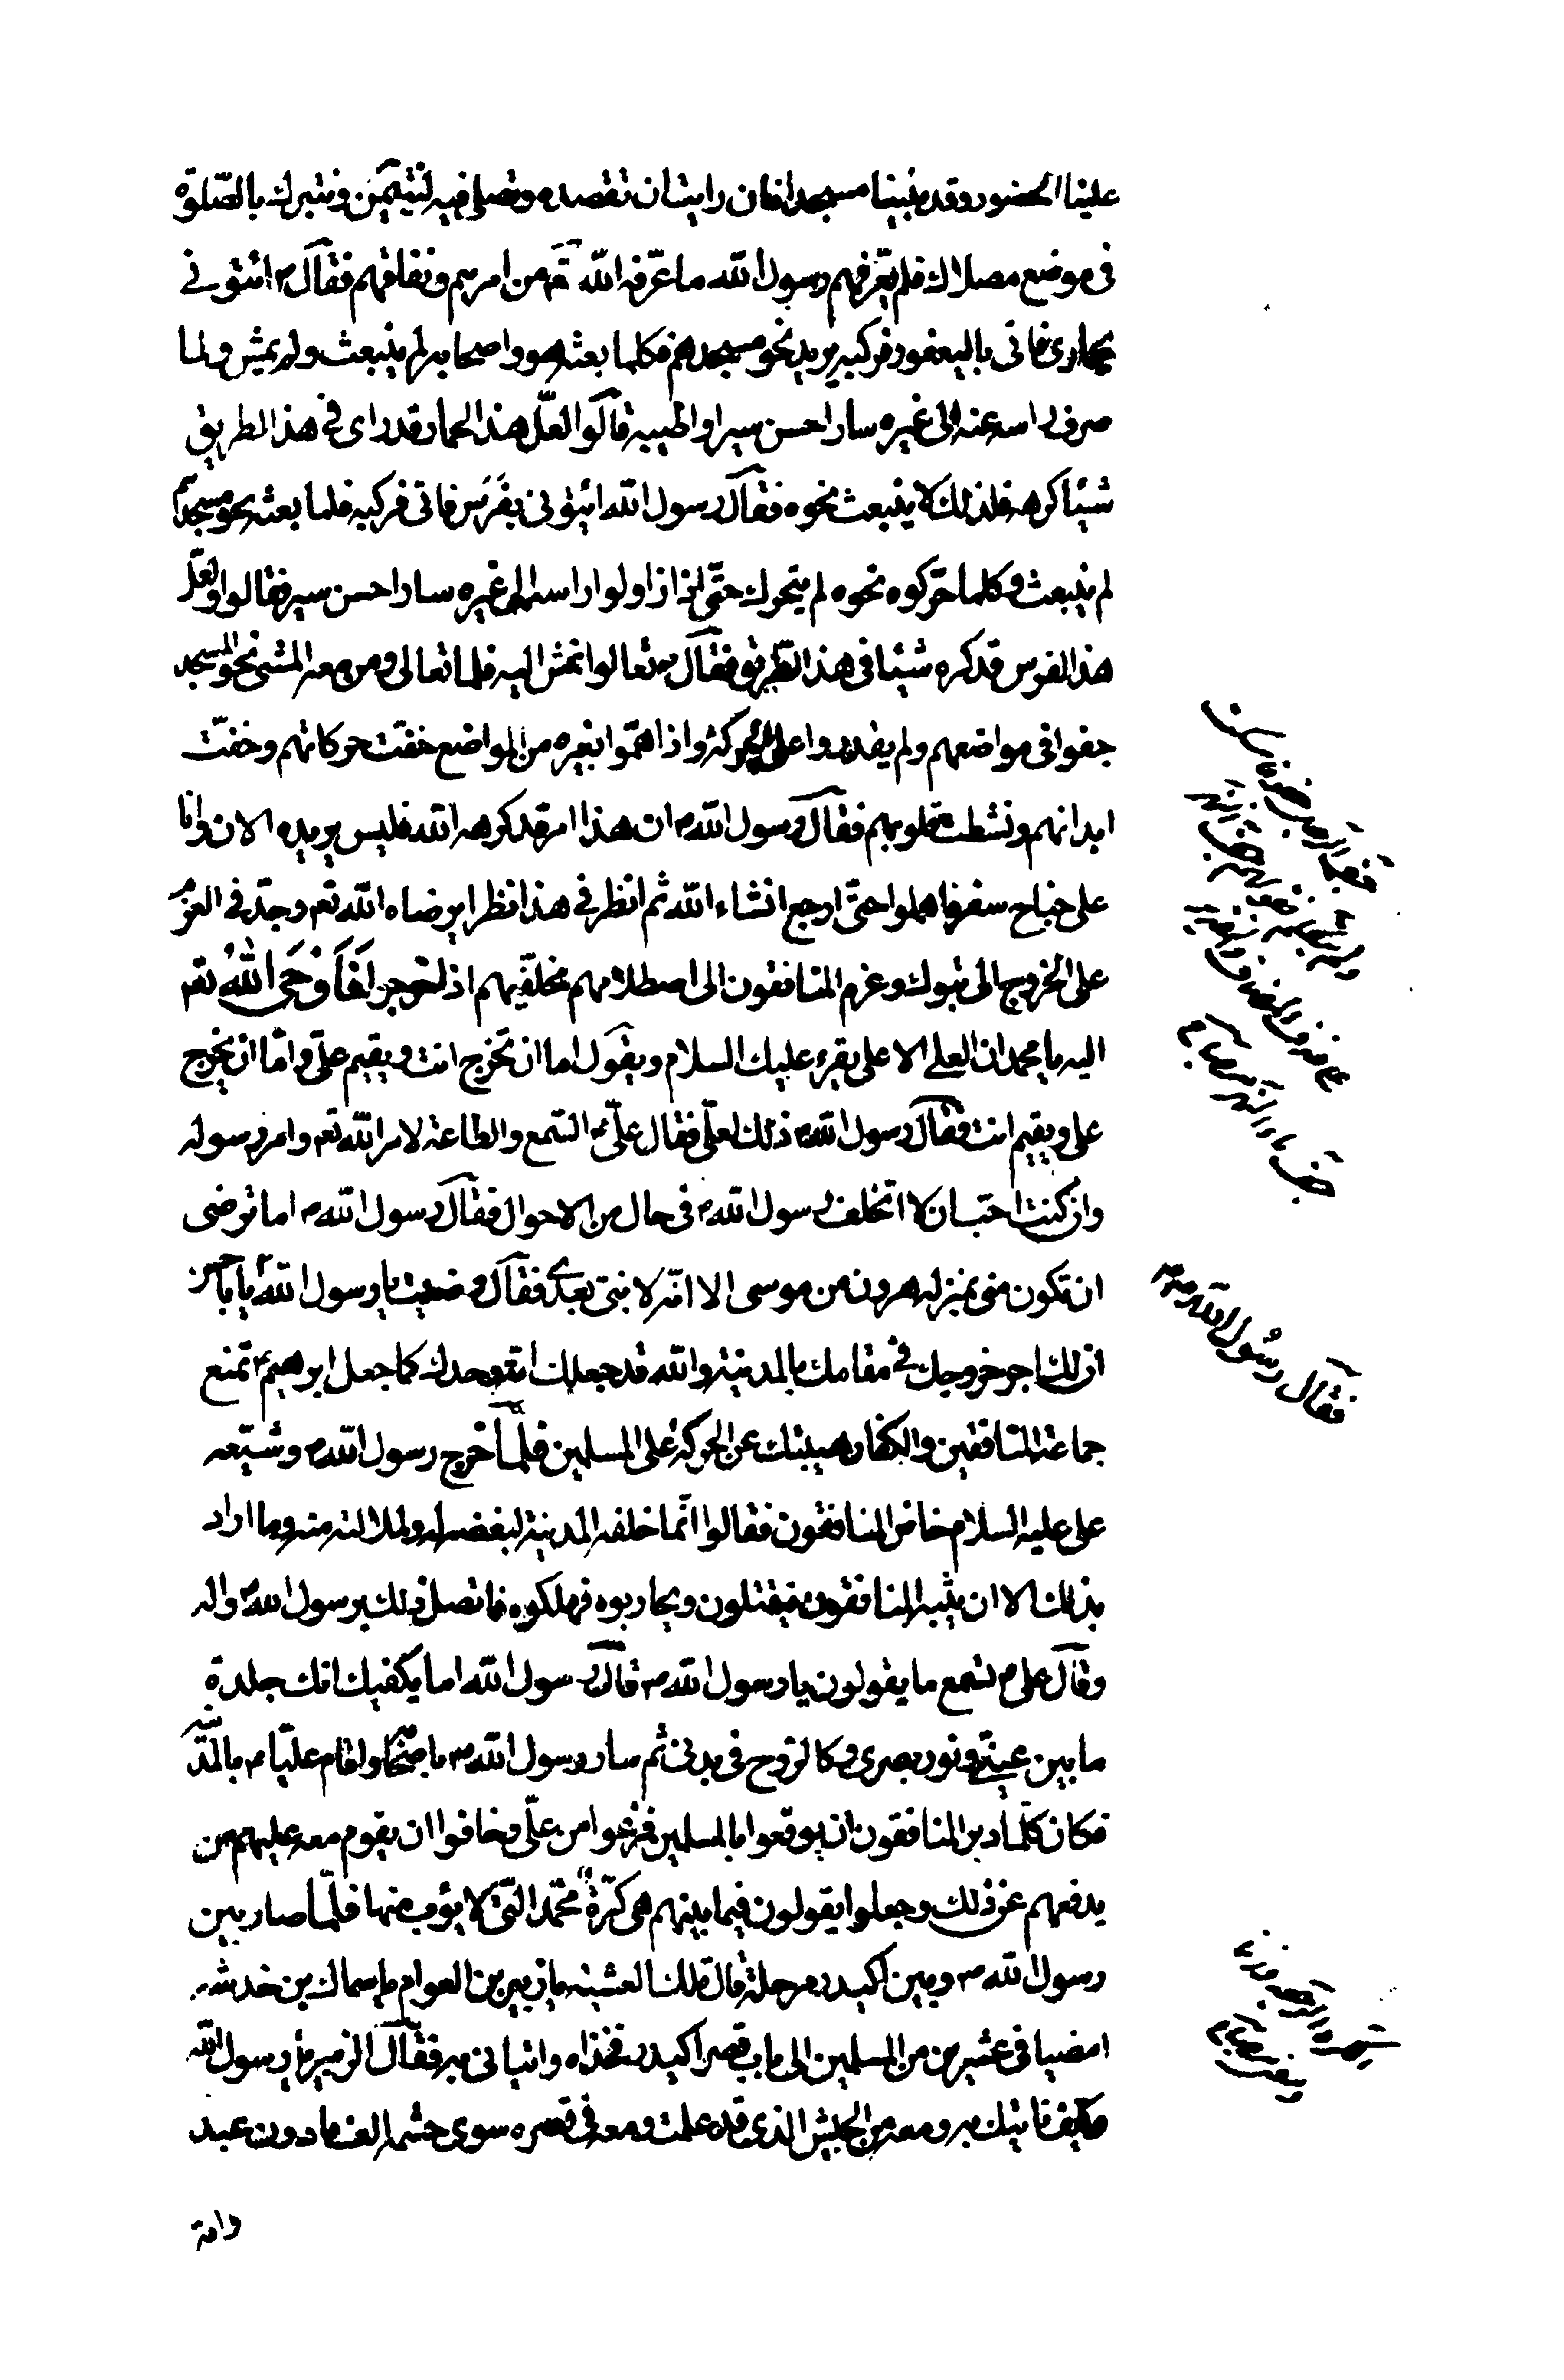 علينا الحضور وقد بنينا مسجدا فان رايت ان تقصده وتصلى فيه لنتيمّن ونتبرك بالصّلوة
فى موضع مصلاك فلم يعرّفهم رسول الله ما عرّفه الله تع من امرهم ونفاقهم فقال ص ائتونى
بحمارى فاتى باليعفور فركبه يريد نحو مسجدهم فكلما بعثه هو واصحابه لم ينبعث ولم يمش ولما
صرف راسه عنه الى غيره سار احسن سير واطيبه قالوا لعلّ هذا الحمار قد راى فى هذا الطريق
شيئا كرهه فلذلك لا ينبعث نحوه فقال رسول الله ائتونى بفرس فاتى فركبه فلما بعثه نحو مسجدهم
لم ينبعث وكلما حرّكوه نحوه لم يتحرك حتّى اذا ولوا راسه الى غيره سار احسن سير فقالوا ولعلّ
هذا الفرس قد كره شيئا فى هذا الطريق فقال ص تعالوا نمش اليه فلما تعالى ومن معه المشى نحو المسجد
جفوا فى مواضعهم ولم يقدروا على الحركة واذا همّوا بغيره من المواضع خفت حركاتهم وخفّت
ابدانهم ونشطت قلوبهم فقال رسول الله ص ان هذا امر قد كرهه الله فليس يريده الان وانا
على جناح سفر فامهلوا حتى ارجع انشاء الله ثم انظر فى هذا نظرا يرضاه الله تع وجدّ فى العزم
على الخروج الى تبوك وعزم المنافقون الى اصطلام مخلّفيهم اذا خرجوا فاوحى الله تع
اليه يا محمد ان العلى الاعلى يقرء عليك السلام ويقول اما ان تخرج انت ويقيم علىّ واما ان يخرج
على ويقيم انت فقال رسول الله ص ذلك لعلىّ فقال علىّ ع السّمع والطاعة لامر الله تع وامر رسوله
وان كنت احبّ ان لا اتخلف رسول الله ص فى حال من الاحوال فقال رسول الله ص اما ترضى
ان تكون منى بمنزلة هرون من موسى الا انّه لا نبىّ بعدى فقال رضيت يا رسول الله
ان لك اجر خروجك فى مقامك بالمدينة والله قد جعلك امّة وحدك كما جعل ابرهيم ع تمنع
جماعة المنافقين والكفار هيبتك عن الحركة على المسلمين فلمّا خرج رسول الله ص وشيّعه
على عليه السلام خاض المنافقون فقالوا انّما خلفه بالمدينة لبغضه له ولملالته منه وما اراد
بذلك الا ان يثبه المنافقون فيقتلون ويحاربوه فيهلكوه فاتصل ذلك برسول الله ص واله
وقال على ع تسمع ما يقولون يا رسول الله ص قال رسول الله اما يكفيك انك جلدة
ما بين عينى ونور بصرى وكالروح فى بدنى ثم سار رسول الله ص باصحابه واقام عليّا ع بالمدينة
فكان كلّما دبر المنافقون ان يوقعوا بالمسلمين فزعوا من علىّ وخافوا ان يقوم معه عليهم من
يدفعهم عن ذلك وجعلوا يقولون فيما بينهم هى كرّة محمّد الّتى لا يؤب منها فلمّا صار بين
رسول الله ص وبين اكيدر مرحلة قال تلك العشية يا زبير بن العوام يا سماك بن خدشه
امضيا فى عشرين من المسلمين الى باب قصر اكيدر فخذاه واتيانى به فقال الزبير يا رسول الله
وكيف ناتيك به ومعه من الجيش الذى قد علمت ومعه فى قصره سوى حشمه الف ما دون عبد
وامة
فقال رسول الله ص